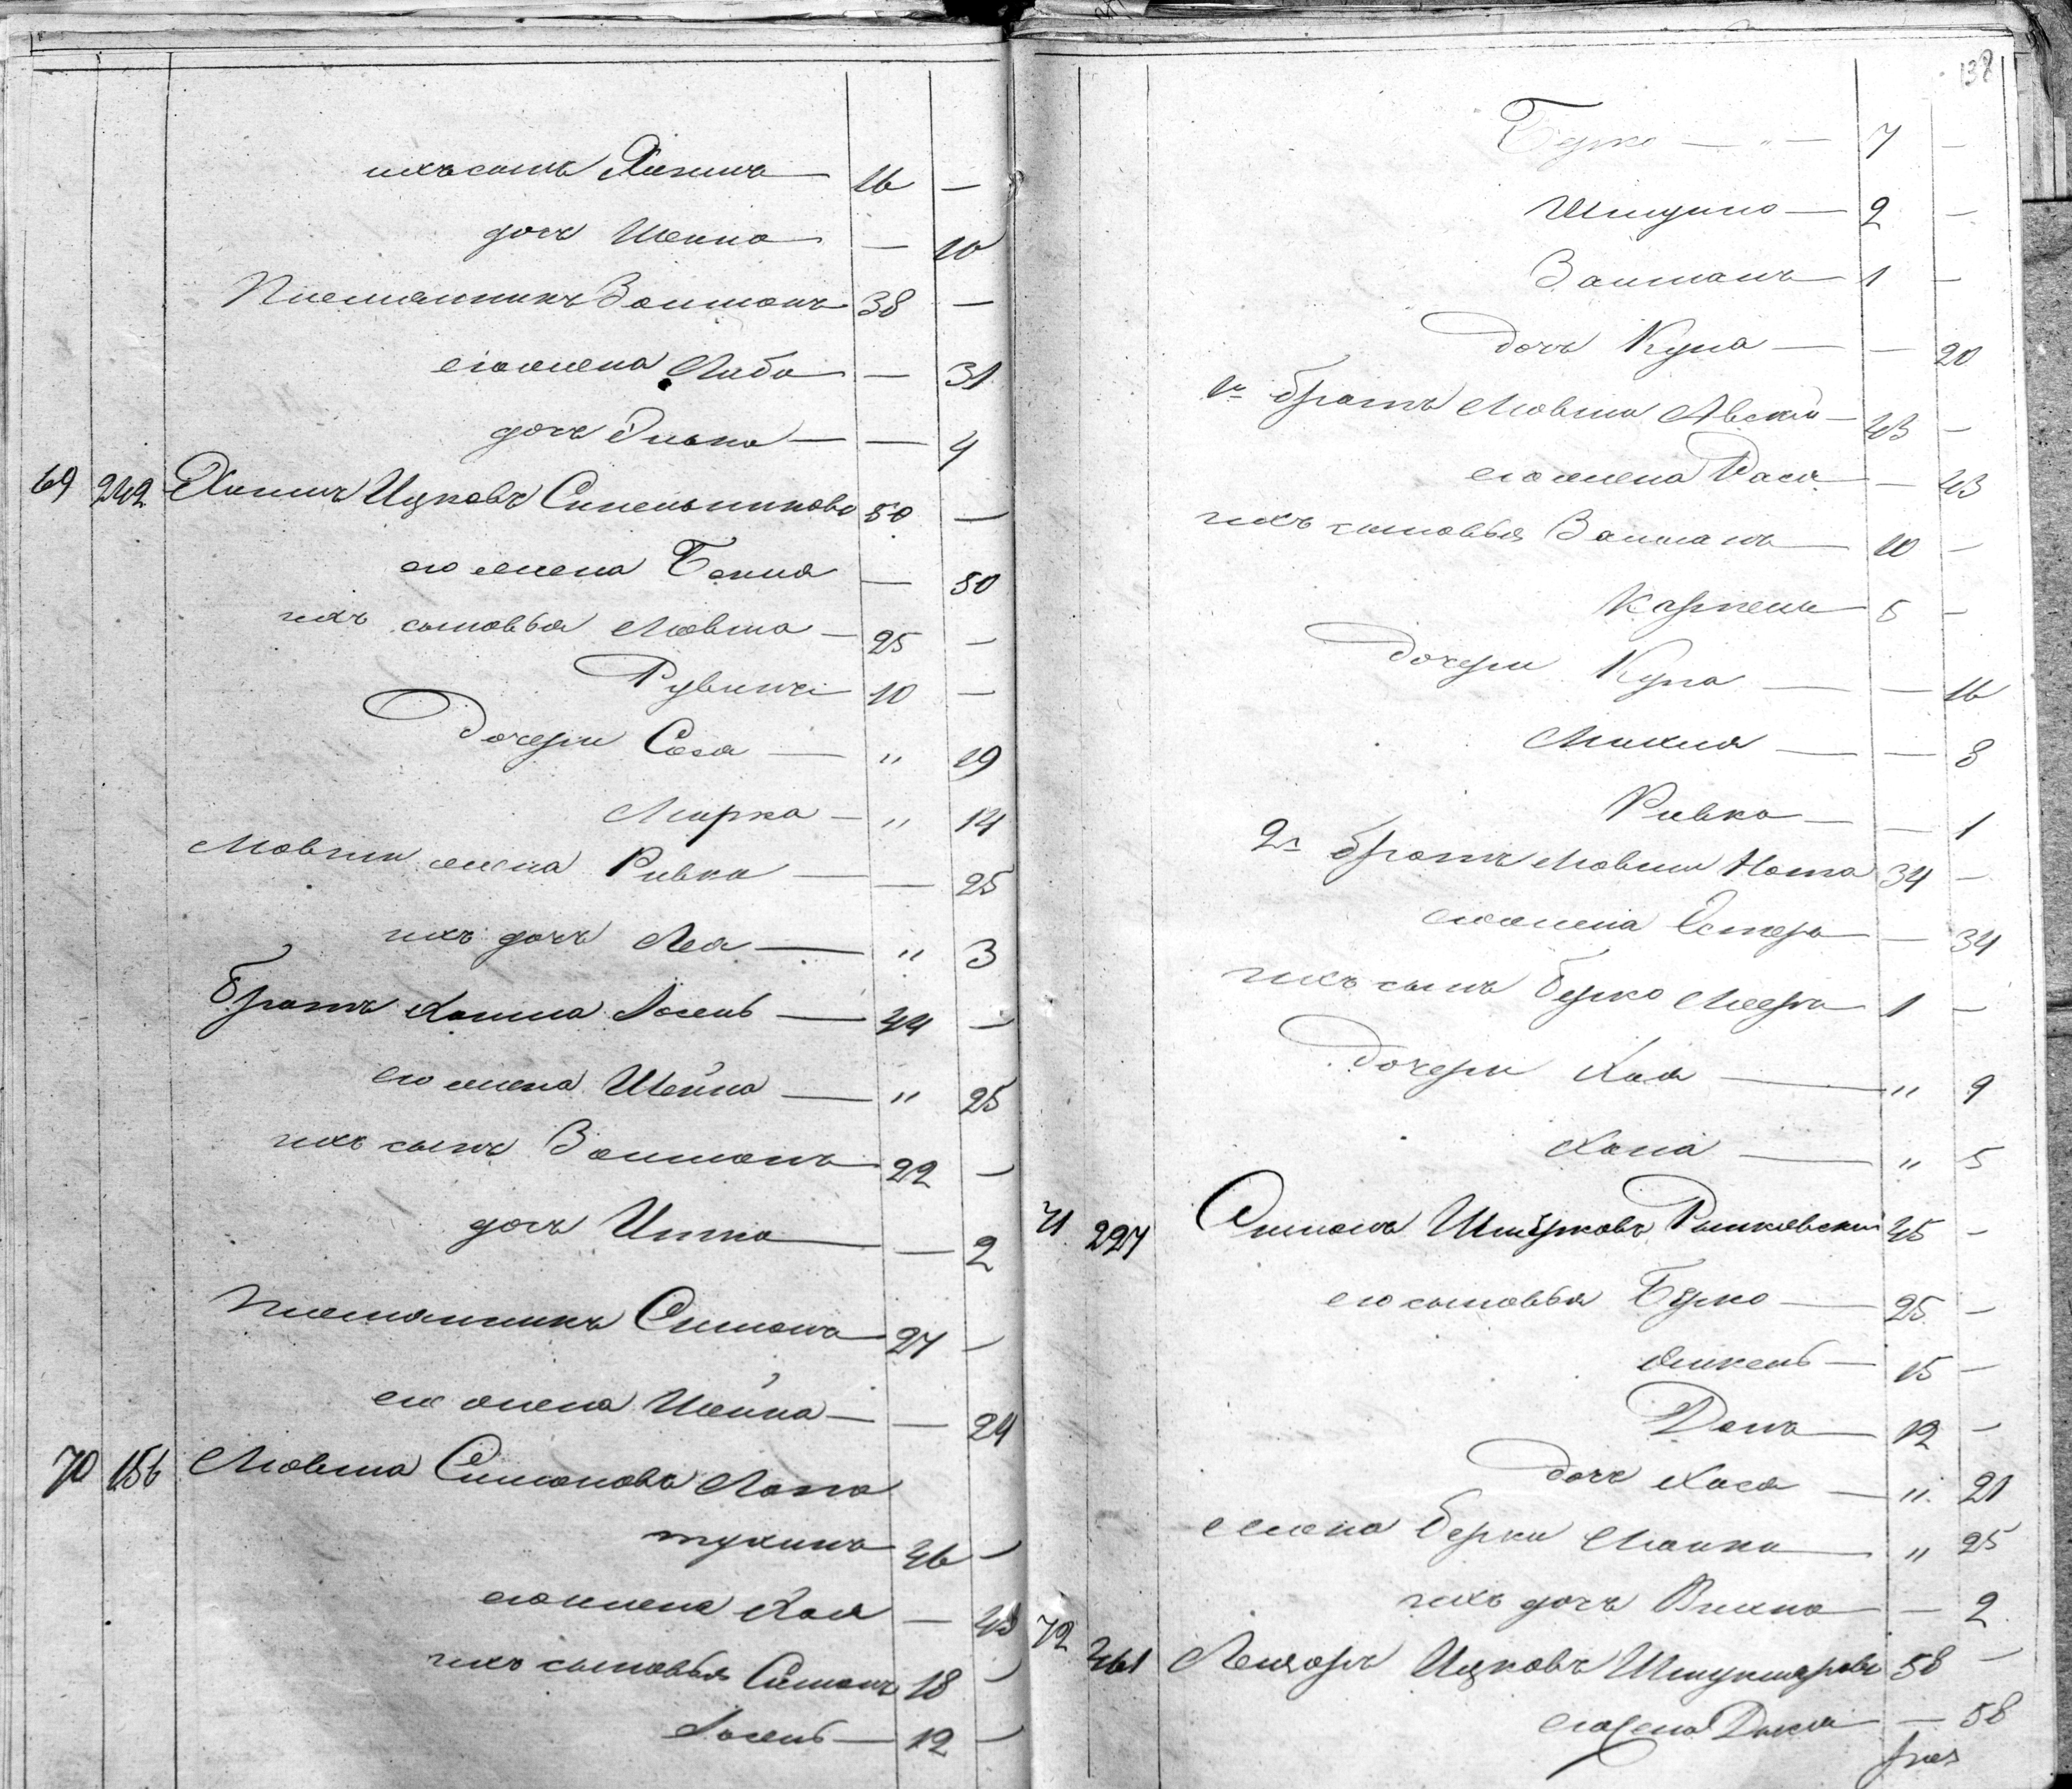 ихъ сынъ Хаимъ — 16 —
дочь Шейна — 10
Племянникъ Залманъ 38 —
его жена Либа — 31
дочь Элька — 4
69 242 Хаимъ Ицковъ Синельниковъ 50 —
его жена Бейля — 50
ихъ сыновья Мовша — 25 —
Рувинъ 10 —
Дочери Сося — " 19
Мирка — " 14
Мовши жена Ривка — 25
ихъ дочь Лея — " 3
Братъ Хаима Іосель — 44 —
его жена Шейна — " 25
ихъ сынъ Залманъ 22 —
дочь Итта — 2
Племянникъ Симонъ 27 —
его жена Шейна — 24
70 156 Мовша Симоновъ Лопа
тухинъ 46 —
его жена Хая — 45
ихъ сыновья Симонъ 18 —
Іосель — 12 —
138
Берко — " — 7 —
Шмуйло — 2 —
Залманъ 1 —
дочь Куна — 20
1й братъ Мовши Авсей — 43 —
его жена Рася — 43
ихъ сыновья Залманъ 10 —
Карпель 5 —
Дочери Куна — 16
Михля — 8
Ривка — 1
2й братъ Мовши Нота 34 —
его жена Естеръ — 34
ихъ сынъ Берко Мееръ 1 —
Дочери Хая — " 9
Хана — " 5
71 227 Симонъ Шмерковъ 45 —
его сыновья Берко — 25 —
15 —
12 —
дочь Хася — " 21
жена Берки — " 25
ихъ дочь — 2
72 461 Лейзоръ Ицковъ 58 —
его жена — 58